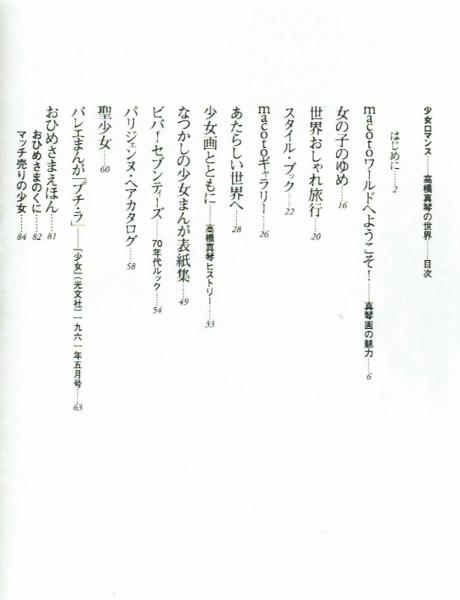 少女ロマンス——高橋真琴の世界——目次
はじめに……2
macotoワールドへようこそ！——真琴画の魅力……6
女の子のゆめ……16
世界おしゃれ旅行……20
スタイル・ブック……22
macotoギャラリー……26
あたらしい世界へ……28
少女画とともに——高橋真琴ヒストリー……33
なつかしの少女まんが表紙集……49
ビバ！セブンティーズ——70年代ルック……54
パリジェンヌ・ヘアカタログ……58
聖少女……60
バレエまんが「プチ・ラ」——「少女」（光文社）一九六一年五月号……63
おひめさまえほん……81
おひめさまのくに……82
マッチ売りの少女……84